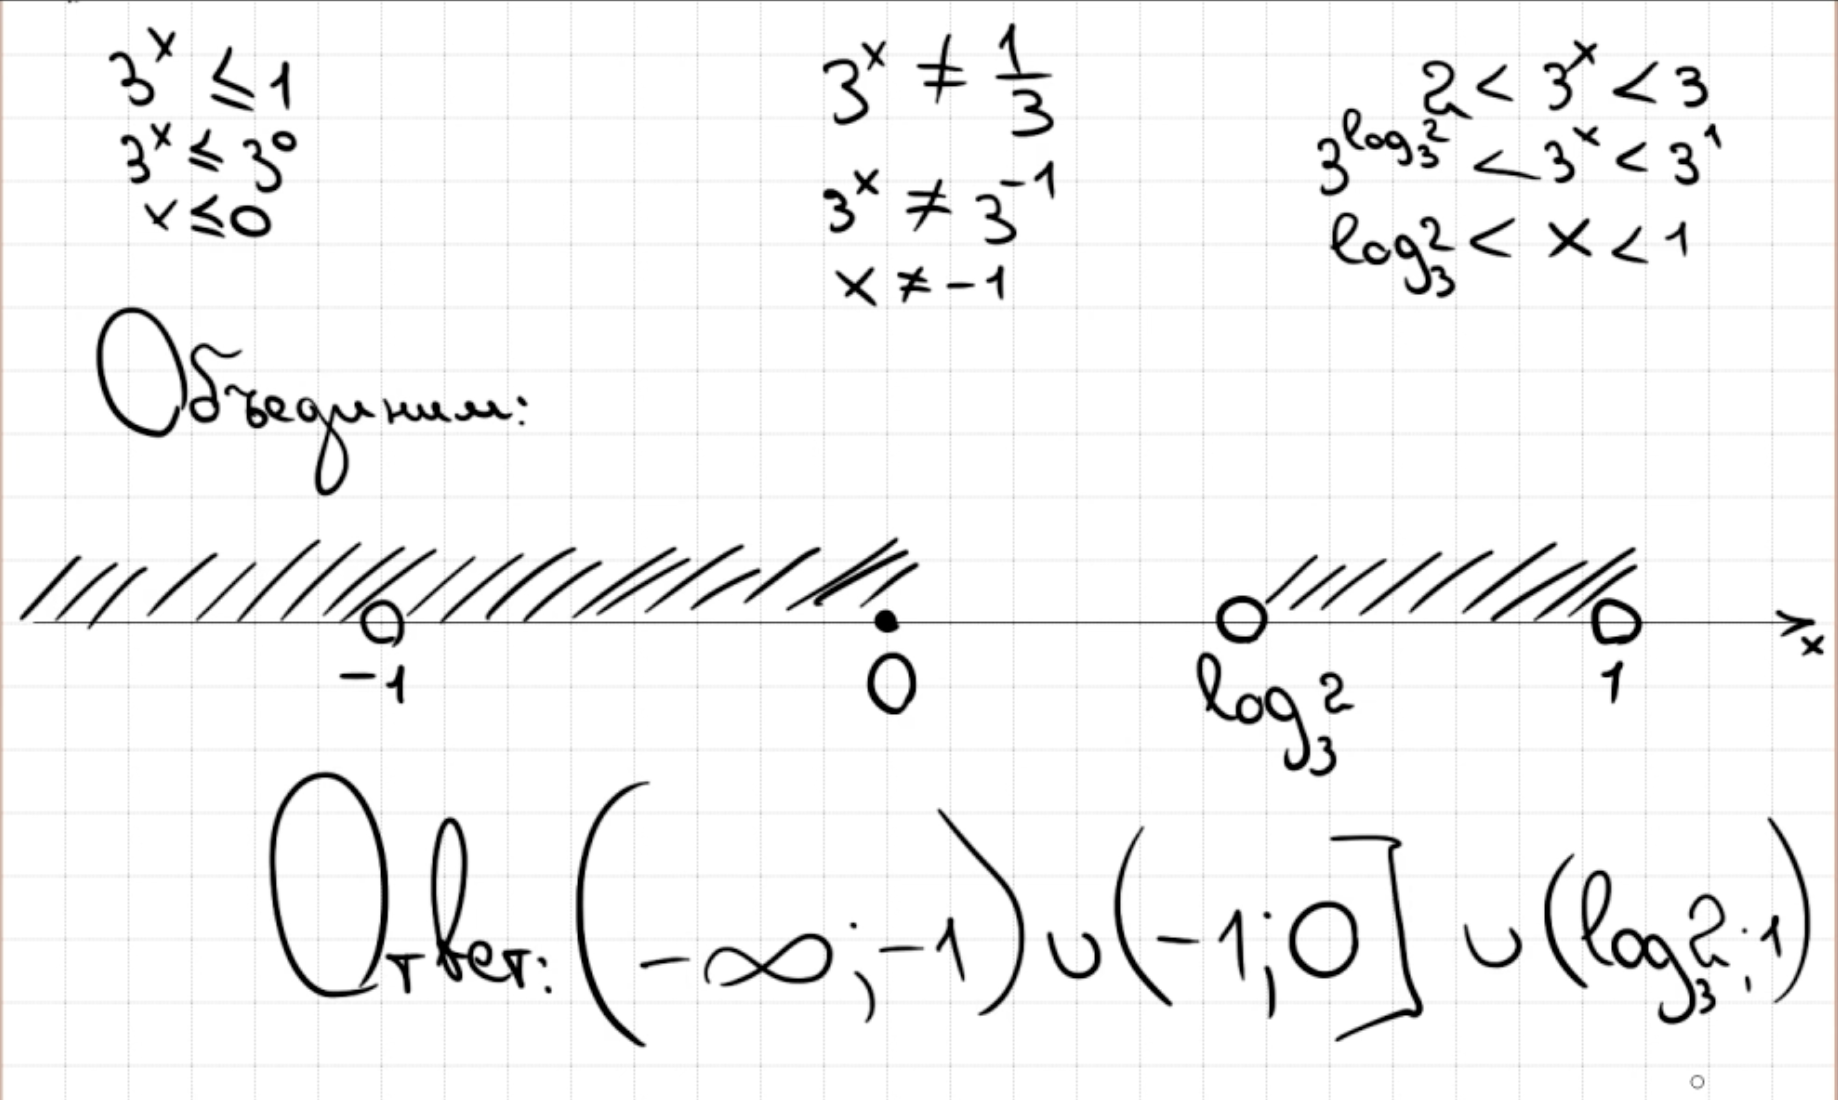 3ˣ ≤ 1
3ˣ ≤ 3⁰
x ≤ 0
3ˣ ≠ 1/3
3ˣ ≠ 3⁻¹
x ≠ -1
2 < 3ˣ < 3
3^(log₃2) < 3ˣ < 3¹
log₃2 < x < 1
Объединим:
-1 0 log₃2 1 x
Ответ: (-∞; -1) ∪ (-1; 0] ∪ (log₃2; 1)